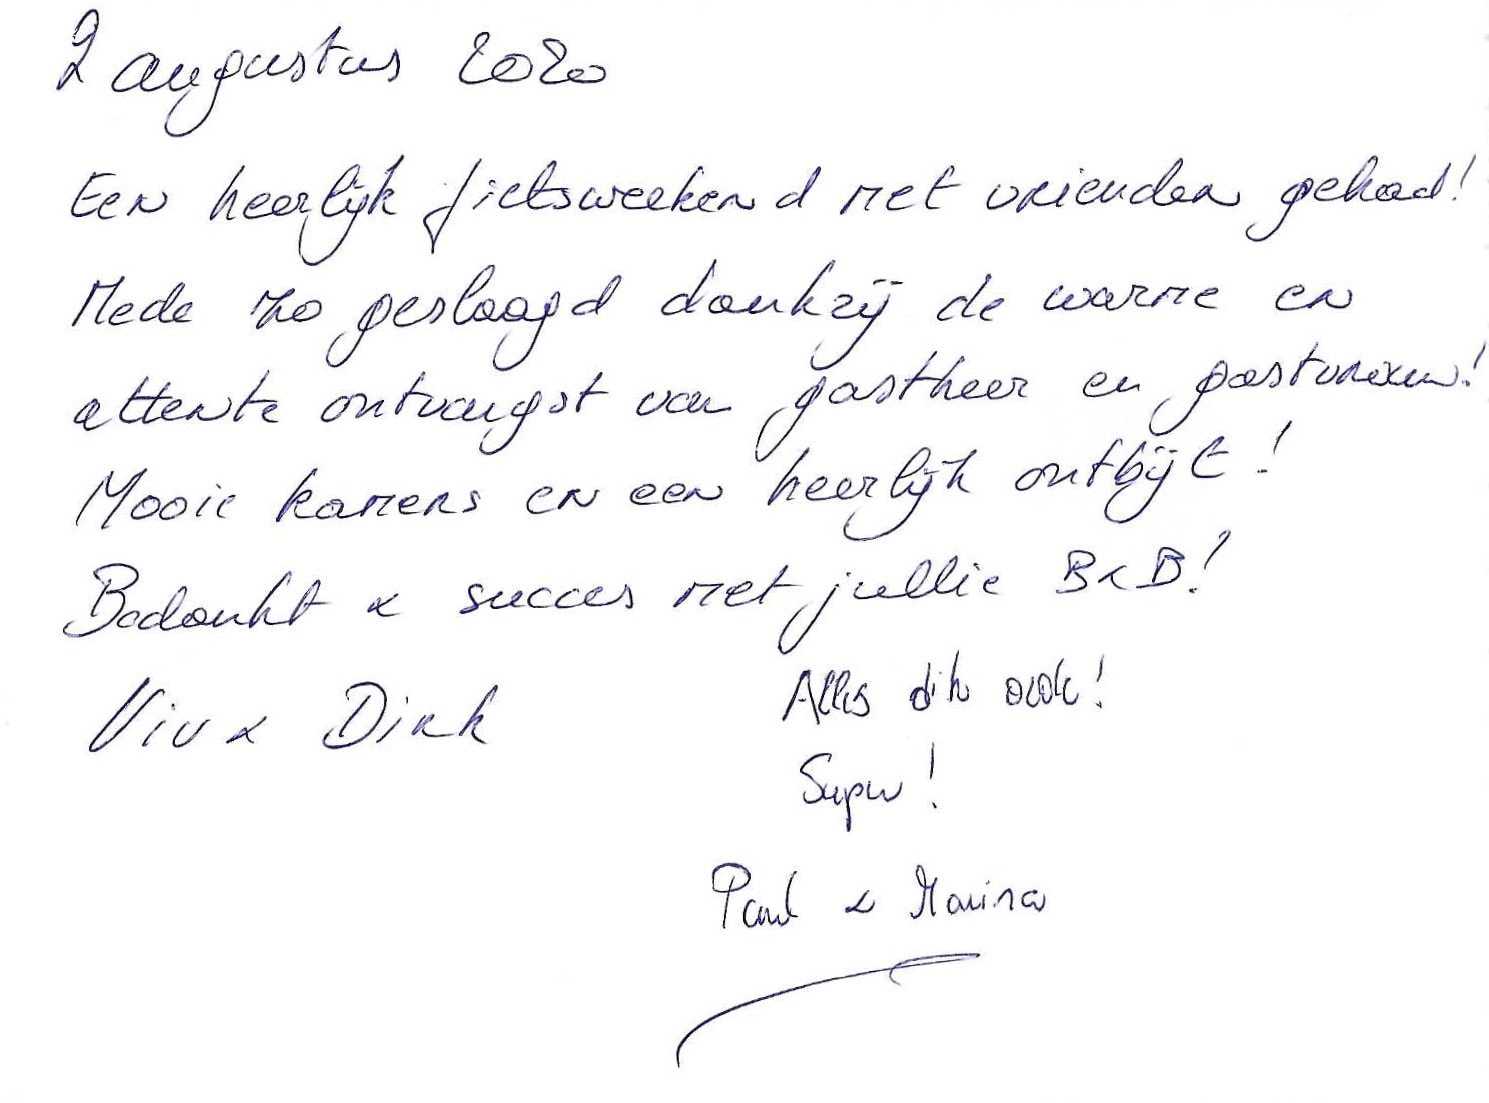 2 augustus 2020
Een heerlijk fietsweekend met vrienden gehad!
Mede zo geslaagd dankzij de warme en
attente ontvangst van gastheer en gastvrouw!
Mooie kamers en een heerlijk ontbijt!
Bedankt & succes met jullie B&B!
Viv & Dirk
Alles dik ook!
Super!
Paul & Marina